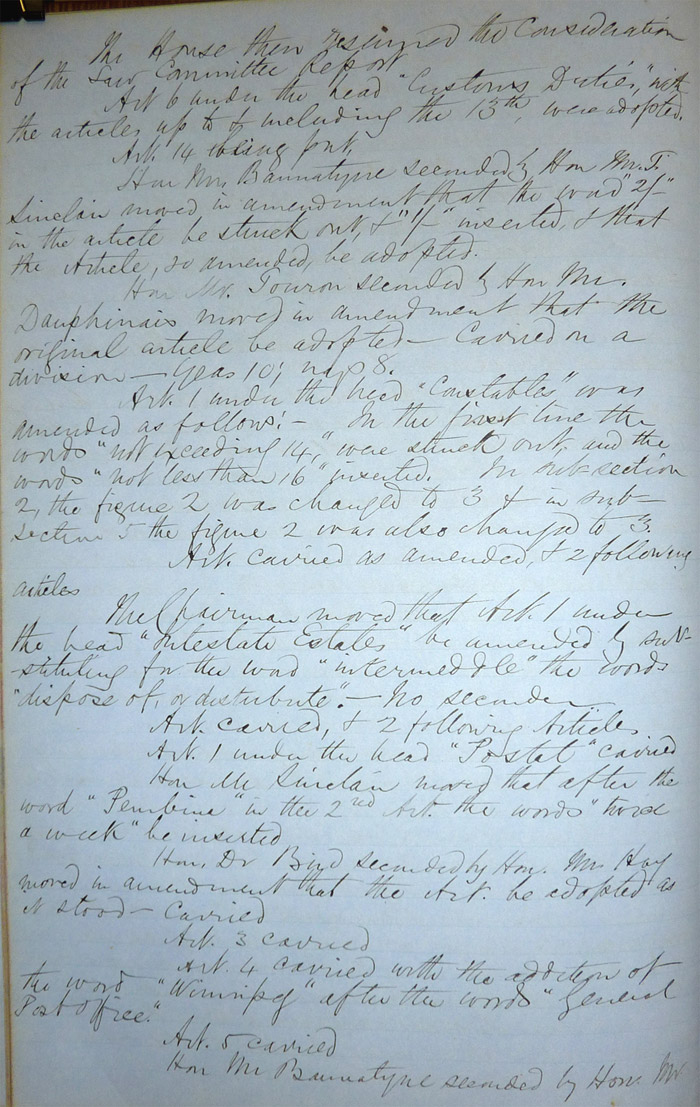 The House then resumed the Consideration
of the Law Committee Report
Art 6 under the head "Customs Duties," with
the articles up to & including the 13th, were adopted.
Art. 14 being put,
Hon Mr. Bannatyne seconded by Hon Mr. T.
Sinclair moved in amendment that the word "2/-"
in the article be struck out, & "1/-" inserted, & that
the Article, so amended, be adopted.
Hon Mr. Touron seconded by Hon Mr.
Dauphinais moved in amendment that the
original article be adopted – Carried on a
division – Yeas 10; nays 8.
Art. 1 under the head "Constables" was
amended as follows: – In the first line the
words "not exceeding 14," were struck out, and the
words "not less than 16" inserted. In sub-section
2, the figure 2 was changed to 3 & in sub-
section 5 the figure 2 was also changed to 3
Art. carried as amended, & 2 following
articles
The Chairman moved that Art. 1 under
the head "Intestate Estates" be amended by sub-
stituting for the word "intermeddle" the words
"dispose of, or distribute". – No seconder
Art. carried, & 2 following Articles
Art. 1 under the head "Postal" carried
Hon Mr Sinclair moved that after the
word "Pembina" in the 2nd Art. the words "twice
a week" be inserted
Hon. Dr Bird seconded by Hon. Mr. Hay
moved in amendment that the Art. be adopted as
it stood – Carried
Art. 3 carried
Art. 4 carried with the addition of
the word "Winnipeg" after the words "General
Post Office."
Art. 5 carried
Hon Mr Bannatyne seconded by Hon. Mr